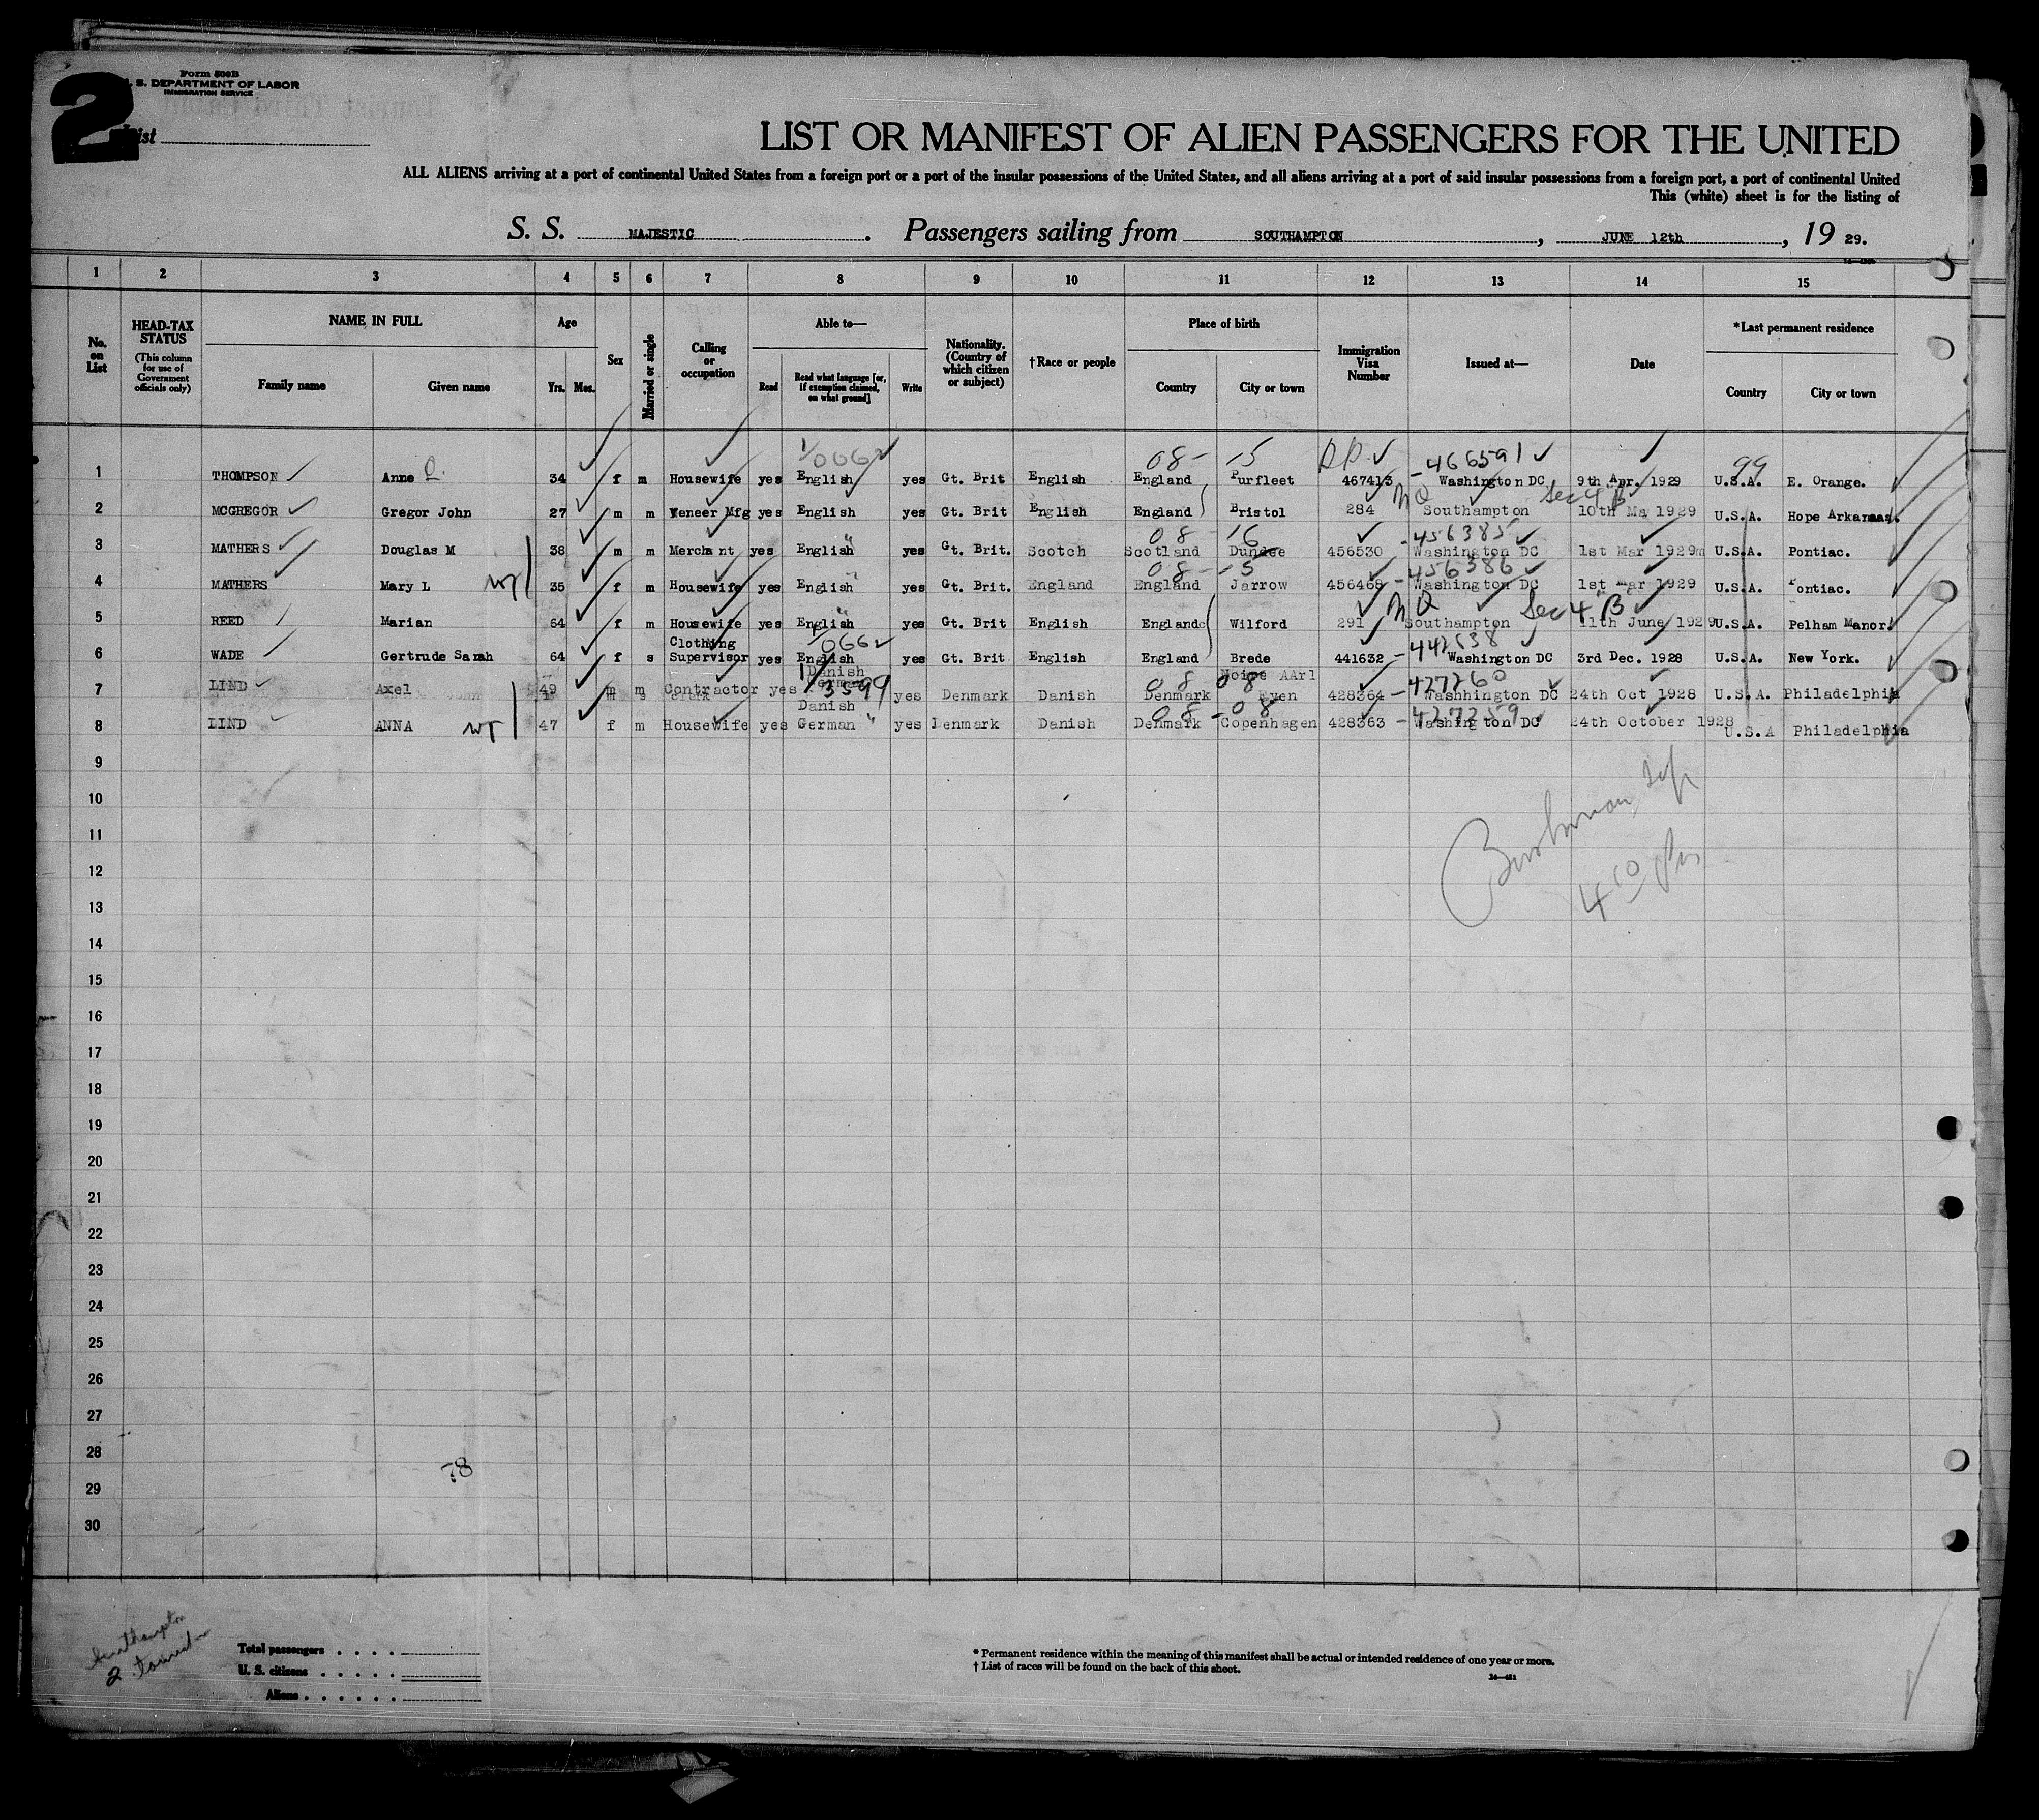 2
Form 500B
S. DEPARTMENT OF LABOR
IMMIGRATION SERVICE
List
LIST OR MANIFEST OF ALIEN PASSENGERS FOR THE UNITED
ALL ALIENS arriving at a port of continental United States from a foreign port or a port of the insular possessions of the United States, and all aliens arriving at a port of said insular possessions from a foreign port, a port of continental United
This (white) sheet is for the listing of
S. S. MAJESTIC. Passengers sailing from SOUTHAMPTON, JUNE 12th, 19 29.
1 2 3 4 5 6 7 8 9 10 11 12 13 14 15
No. on List
HEAD-TAX STATUS (This column for use of Government officials only)
NAME IN FULL Family name Given name
Age Yrs. Mos.
Sex
Married or single
Calling or occupation
Able to— Read Read what language [or, if exemption claimed, on what ground] Write
Nationality. (Country of which citizen or subject)
†Race or people
Place of birth Country City or town
Immigration Visa Number
Issued at—
Date
*Last permanent residence Country City or town
0662 08- 15 -466591 99
1 THOMPSON Anne 34 f m Housewife yes English yes Gt. Brit English England Purfleet 467413 Washington DC 9th Apr. 1929 U.S.A. E. Orange.
NQ Sec 4 B
2 MCGREGOR Gregor John 27 m m Veneer Mfg yes English yes Gt. Brit English England Bristol 284 Southampton 10th Ma 1929 U.S.A. Hope Arkansas.
08 -16 -456385
3 MATHERS Douglas M 38 m m Merchant yes English yes Gt. Brit. Scotch Scotland Dundee 456530 Washington DC 1st Mar 1929 U.S.A. Pontiac.
08 -15 -456386
4 MATHERS Mary L 35 f m Housewife yes English yes Gt. Brit. England England Jarrow 456468 Washington DC 1st Mar 1929 U.S.A. Pontiac.
NQ Sec 4 B
5 REED Marian 64 f m Housewife yes English yes Gt. Brit English England Wilford 291 Southampton 11th June 1929 U.S.A. Pelham Manor.
0662 -442638
6 WADE Gertrude Sarah 64 f s Clothing Supervisor yes English yes Gt. Brit English England Brede 441632 Washington DC 3rd Dec. 1928 U.S.A. New York.
3599 08 08 -427260
7 LIND Axel 49 m m Contractor yes Danish German yes Denmark Danish Denmark 428364 Washhington DC 24th Oct 1928 U.S.A. Philadelphia
08 -08 -427259
8 LIND ANNA 47 f m Housewife yes Danish German " yes Denmark Danish Denmark Copenhagen 428363 Washington DC 24th October 1928 U.S.A Philadelphia
9
10
11
12
4 10
13
14
15
16
17
18
19
20
21
22
23
24
25
26
27
28
78
29
30
Southampton
2 tourist
Total passengers . . . .
U. S. citizens . . . . .
Aliens . . . . . .
* Permanent residence within the meaning of this manifest shall be actual or intended residence of one year or more.
† List of races will be found on the back of this sheet.